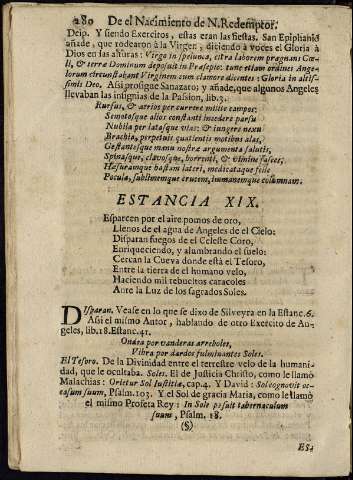 280 De el Nacimiento de N. Redemptor.
Deip. Y siendo Exercitos, estas eran las fiestas. San Epiphanio
añade, que rodearon à la Virgen, diciendo à voces el Gloria à
Dios en las alturas: Virgo in spelunca, citra laborem prægnans Cœ-
li, & terræ Dominum deposuit in Præsepio: tunc etiam ordines Ange-
lorum circunstabant Virginem cum clamore dicentes: Gloria in altis-
simis Deo. Assi prosigue Sanazaro; y añade, que algunos Angeles
llevaban las insignias de la Passion, lib. 3.
Rursus, & aerios per currere mitite campos:
Semotosque alios constanti incedere passu
Nubila per latasque vias: & iungere nexu
Brachia, perpetuis quatientis motibus alas,
Gestantesque manu nostræ argumenta salutis,
Spinasque, clavosque, horrenti, & vimine fasces,
Hasuramque hastam lateri, medicataque felle
Pocula, sublimemque crucem, immanemque columnam.
ESTANCIA XIX.
Esparcen por el aire pomos de oro,
Llenos de el agua de Angeles de el Cielo:
Disparan fuegos de el Celeste Coro,
Enriqueciendo, y alumbrando el suelo:
Cercan la Cueva donde está el Tesoro,
Entre la tierra de el humano velo,
Haciendo mil rebucitos caracoles
Ante la Luz de los sagrados Soles.
Disparan. Vease en lo que se dixo de Silveyra en la Estanc. 6.
Assi el mismo Autor, hablando de otro Exercito de An-
geles, lib. 18. Estanc. 41.
Ondea por vanderas arreboles,
Vibra por dardos fulminantes Soles.
El Tesoro. De la Divinidad entre el terrestre velo de la humani-
dad, que le ocultaba. Soles. El de Justicia Christo, como le llamò
Malachias: Orietur Sol Iustitiæ, cap. 4. Y David: Sol cognovit oc-
casum suum, Psalm. 103. Y el Sol de gracia Maria, como le llamò
el mismo Profeta Rey: In Sole posuit tabernaculum
suum, Psalm. 18.
(§)
ES-